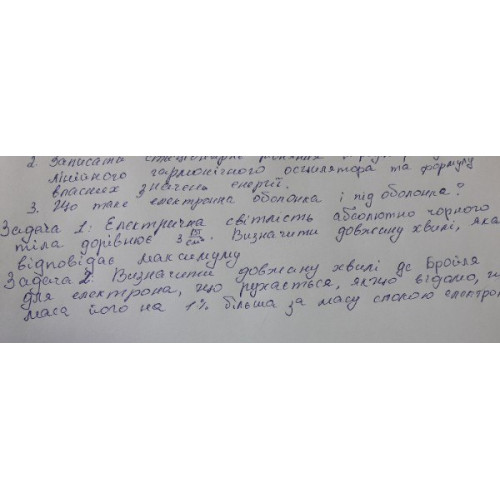 2. Записати стаціонарне рівняння
лінійного гармонічного осцилятора та формулу
власних значень енергії.
3. Що таке електронна оболонка і під оболонка?
Задача 1: Електрична світлість абсолютно чорного
тіла дорівнює 3 Вт/см². Визначити довжину хвилі, яка
відповідає максимуму
Задача 2: Визначити довжину хвилі де Бройля
для електрона, що рухається, якщо відомо, щ
маса його на 1% більша за масу спокою електро